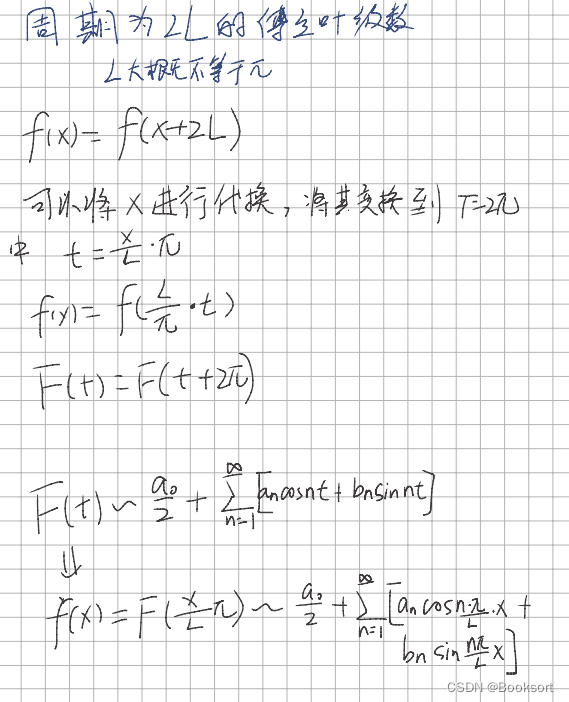 周期为2L的傅立叶级数
L大概无不等于π
f(x)=f(x+2L)
可以将x进行代换，将其变换到T=2π
中 t=x/L·π
f(x)=f(L/π·t)
F(t)=F(t+2π)
F(t)～a₀/2+∑_{n=1}^{∞}[aₙcosnt+bₙsinnt]
⇓
f(x)=F(x/L π)～a₀/2+∑_{n=1}^{∞}[aₙcos n·π/L·x+
bₙ sin nπ/L x]
CSDN @Booksort